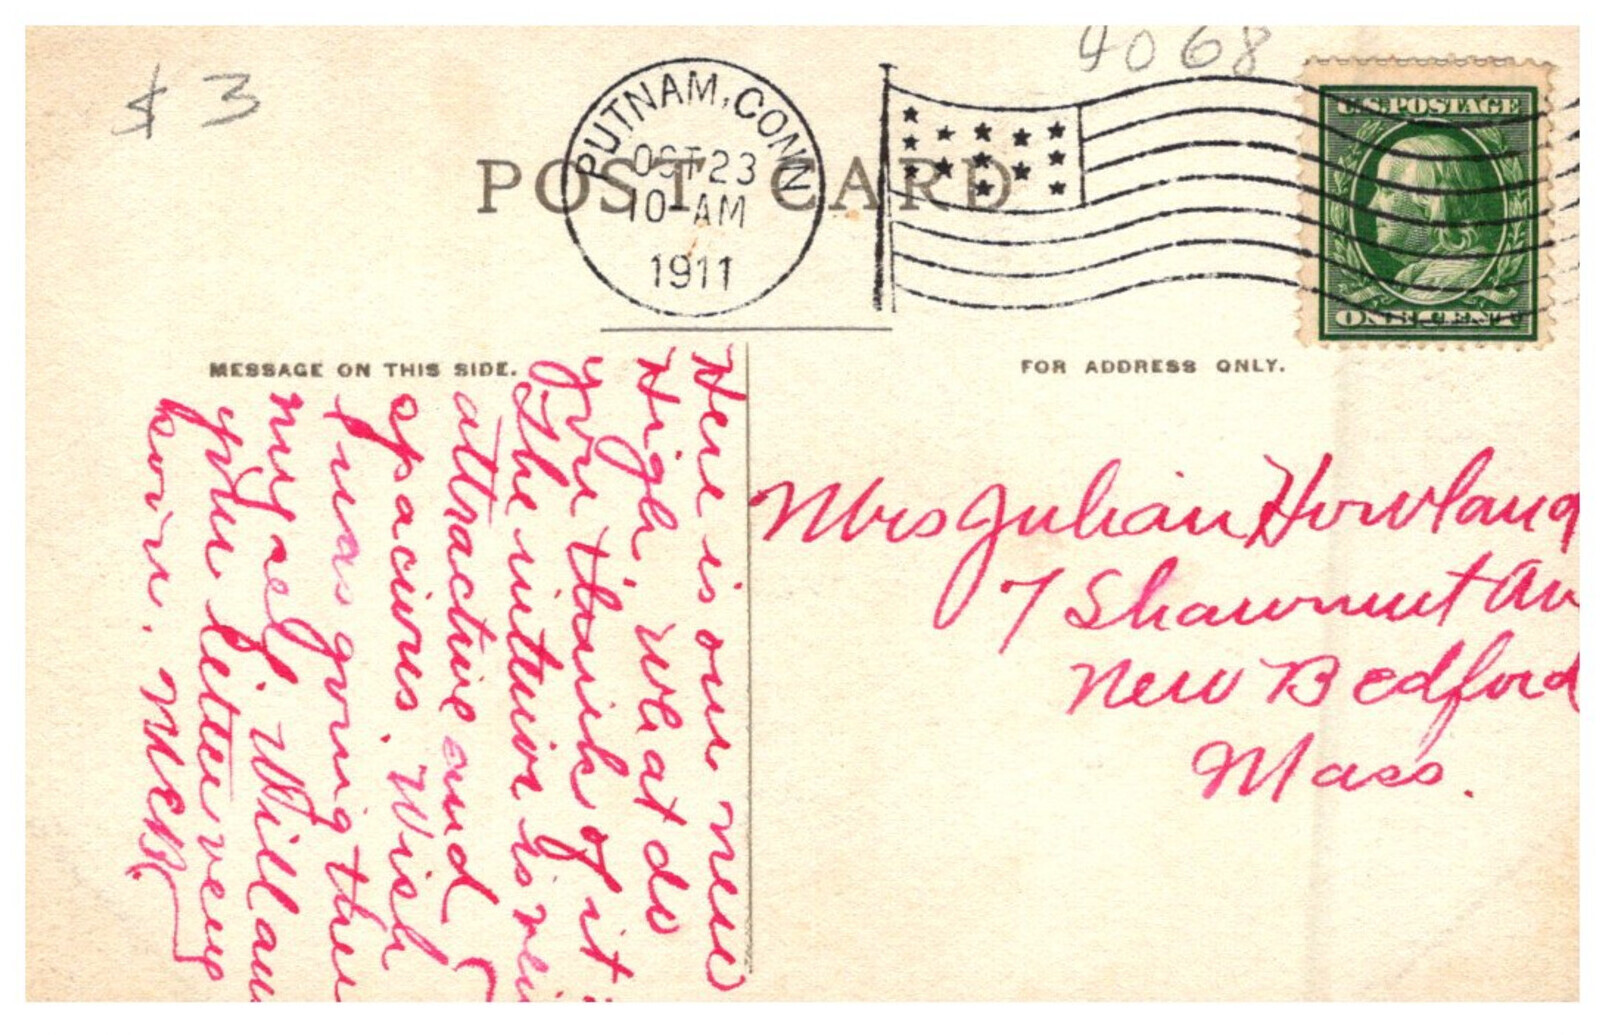 $ 3
4068
PUTNAM, CONN
OCT 23
10-AM
1911
POST CARD
U.S. POSTAGE
ONE CENT
MESSAGE ON THIS SIDE.
FOR ADDRESS ONLY.
Here is our new
High, what do
you think of it
The interior is
attractive and
spacious. Wish
I was going there
myself. Will
your letter very
soon. MEB
Mrs Julian Howland
7 Shawmut Av
New Bedford
Mass.